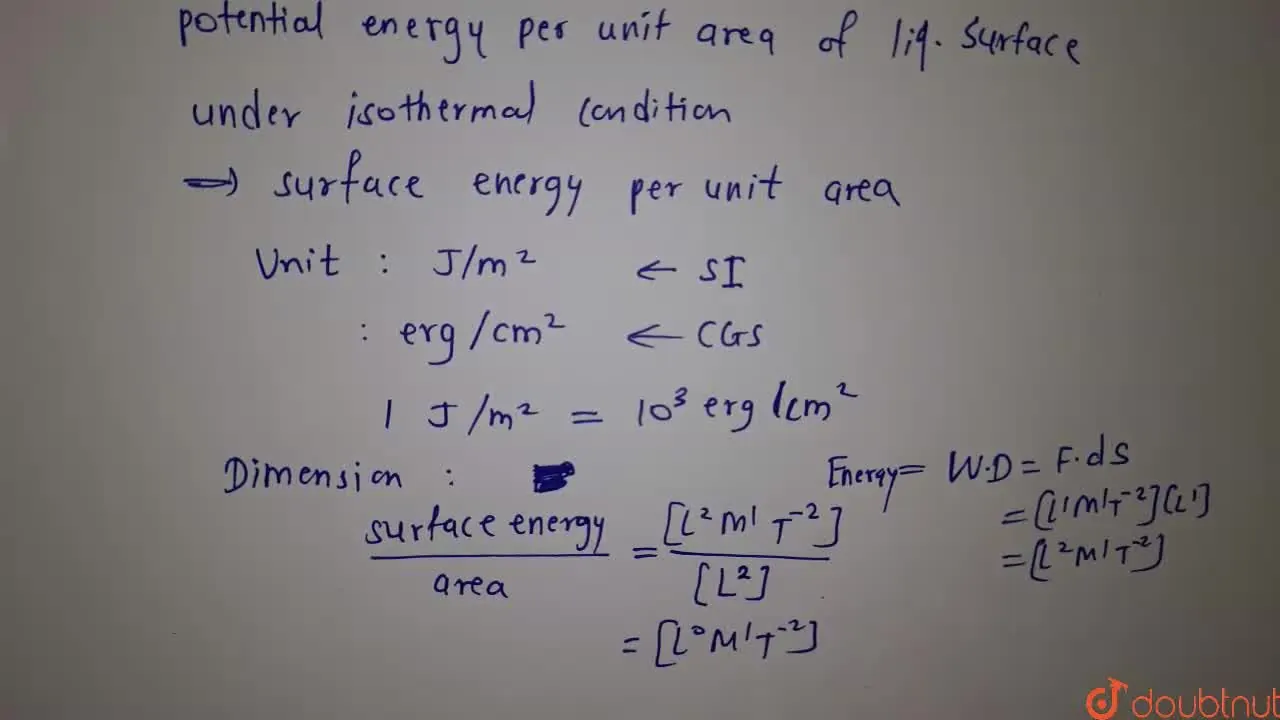 potential energy per unit area of liq. surface
under isothermal condition
⇒ surface energy per unit area
Unit : J/m² ← SI
: erg/cm² ← CGS
1 J/m² = 10³ erg/cm²
Dimension :
Energy = W.D = F.ds
= [L¹M¹T⁻²][L¹]
= [L²M¹T⁻²]
surface energy / area = [L²M¹T⁻²] / [L²]
= [L⁰M¹T⁻²]
doubtnut